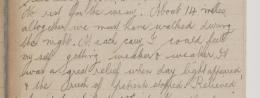 for the view. About 14 miles
altogether we must have walked during
the night. At each pace I could feel
myself getting weaker & weaker. It
was a great relief when day light appeared
& the stopped & Relieved